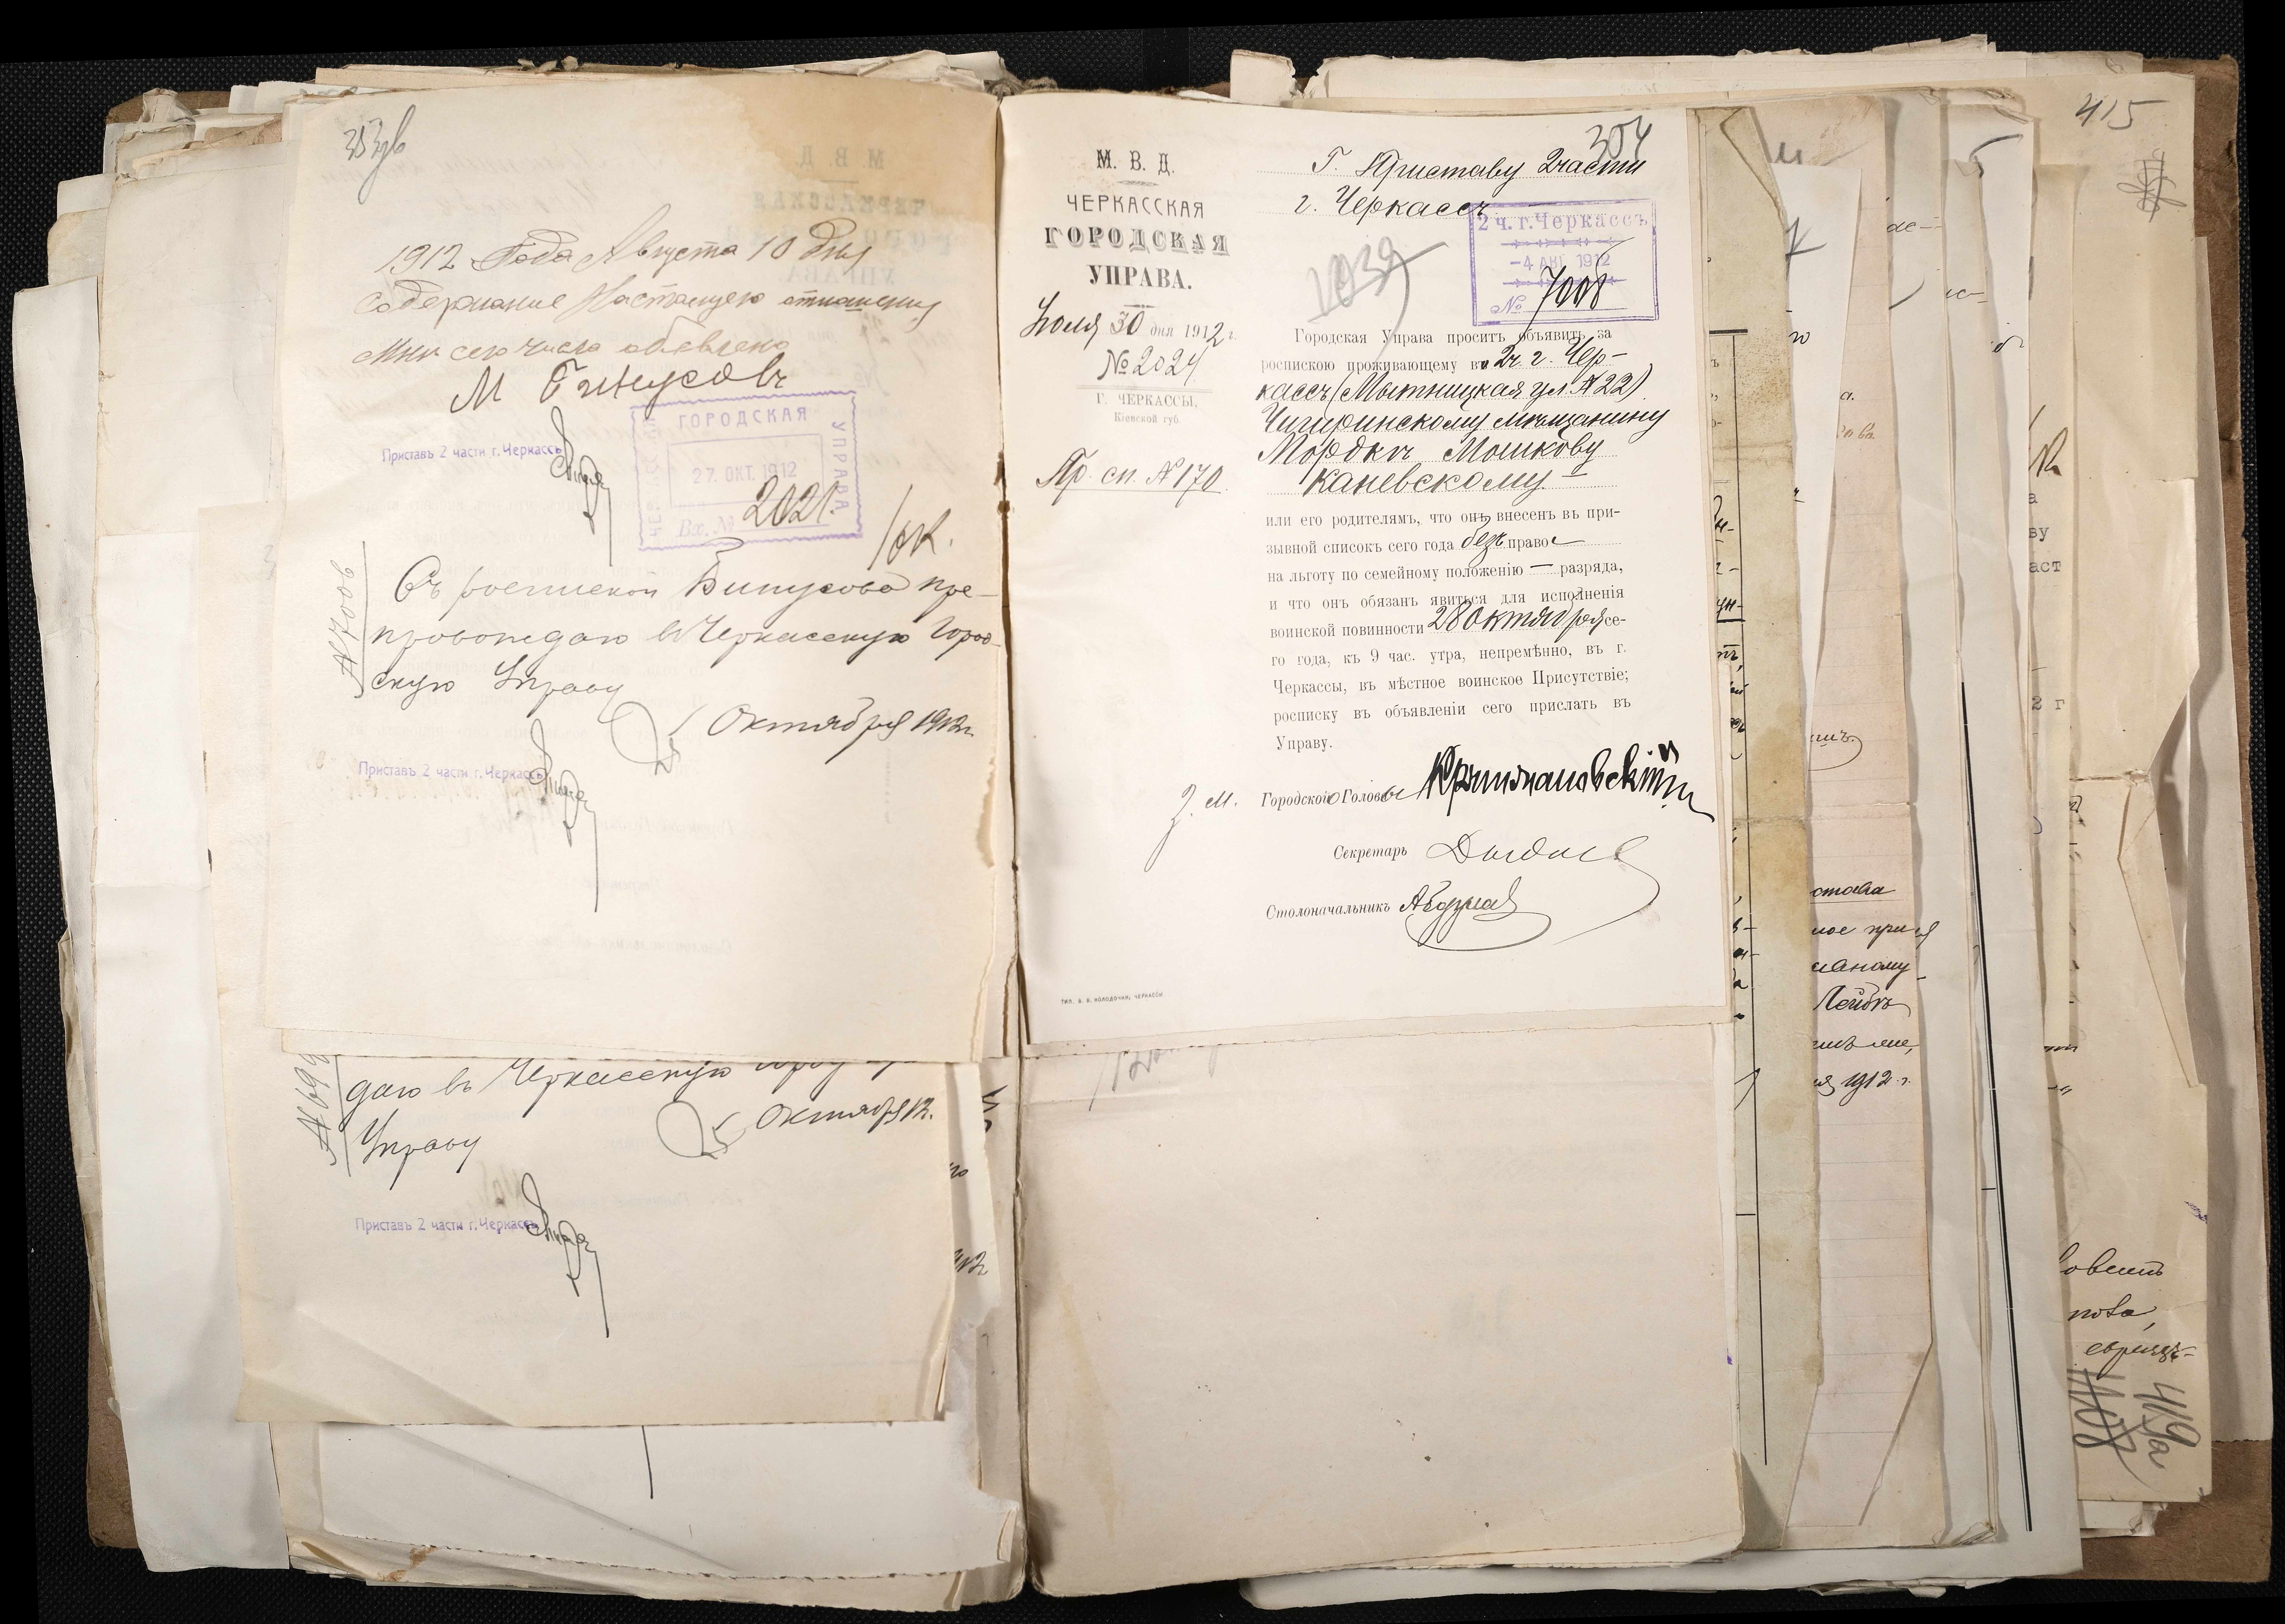 1912 Года Августа 10 дня
содержание настоящего отношения
мне сего числа объявлено
М
Приставъ 2 части г. Черкассъ
ГОРОДСКАЯ
УПРАВА
27. ОКТ. 1912
Вх. №
2021.
№ 7006
Съ роспиской Винусова пре-
провождаю въ Черкасскую Город-
скую Управу
25 Октября 1912 г.
Приставъ 2 части г. Черкассъ
№ 699
даю въ Черкасскую
Управу
25 Октября 12.
Приставъ 2 части г. Черкассъ
М. В. Д.
ЧЕРКАССКАЯ
ГОРОДСКАЯ
УПРАВА.
Іюля 30 дня 1912 г.
№ 2024
Г. ЧЕРКАССЫ,
Кіевской губ.
Пр. сп. № 170
354
Г. Приставу 2 части
г. Черкассъ
2 ч. г. Черкассъ
-4 АВГ 1912
№ 7006
1039
Городская Управа проситъ объявить за
роспискою проживающему въ 2 ч. г. Чер-
кассъ (Мытницкая ул. № 22)
Чигиринскому мѣщанину
Мордкѣ Мошкову
Каневскому –
или его родителямъ, что онъ внесенъ въ при-
зывной списокъ сего года безъ права
на льготу по семейному положенію — разряда,
и что онъ обязанъ явиться для исполненія
воинской повинности 28 октября се-
го года, къ 9 час. утра, непремѣнно, въ г.
Черкассы, въ мѣстное воинское Присутствіе;
росписку въ объявленіи сего прислать въ
Управу.
З. М. Городского Головы
Секретарь
Столоначальникъ
ТИП. В. В. КОЛОДОЧКИ, ЧЕРКАССЫ
415
става
ное при
Лейбъ
1912 г.
419